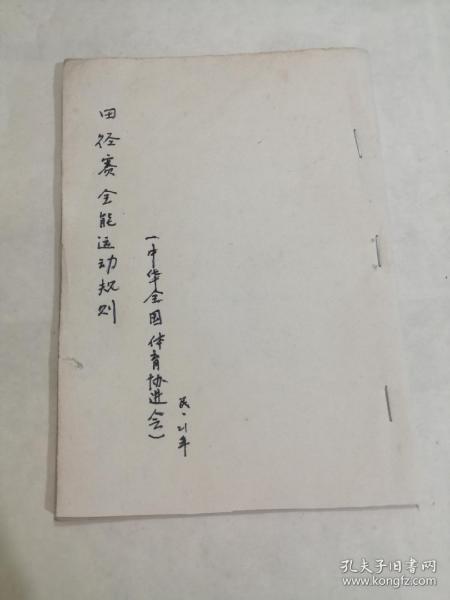 田径赛全能运动规则
(中华全国体育协进会)
民·21年
孔夫子旧书网
www.kongfz.com